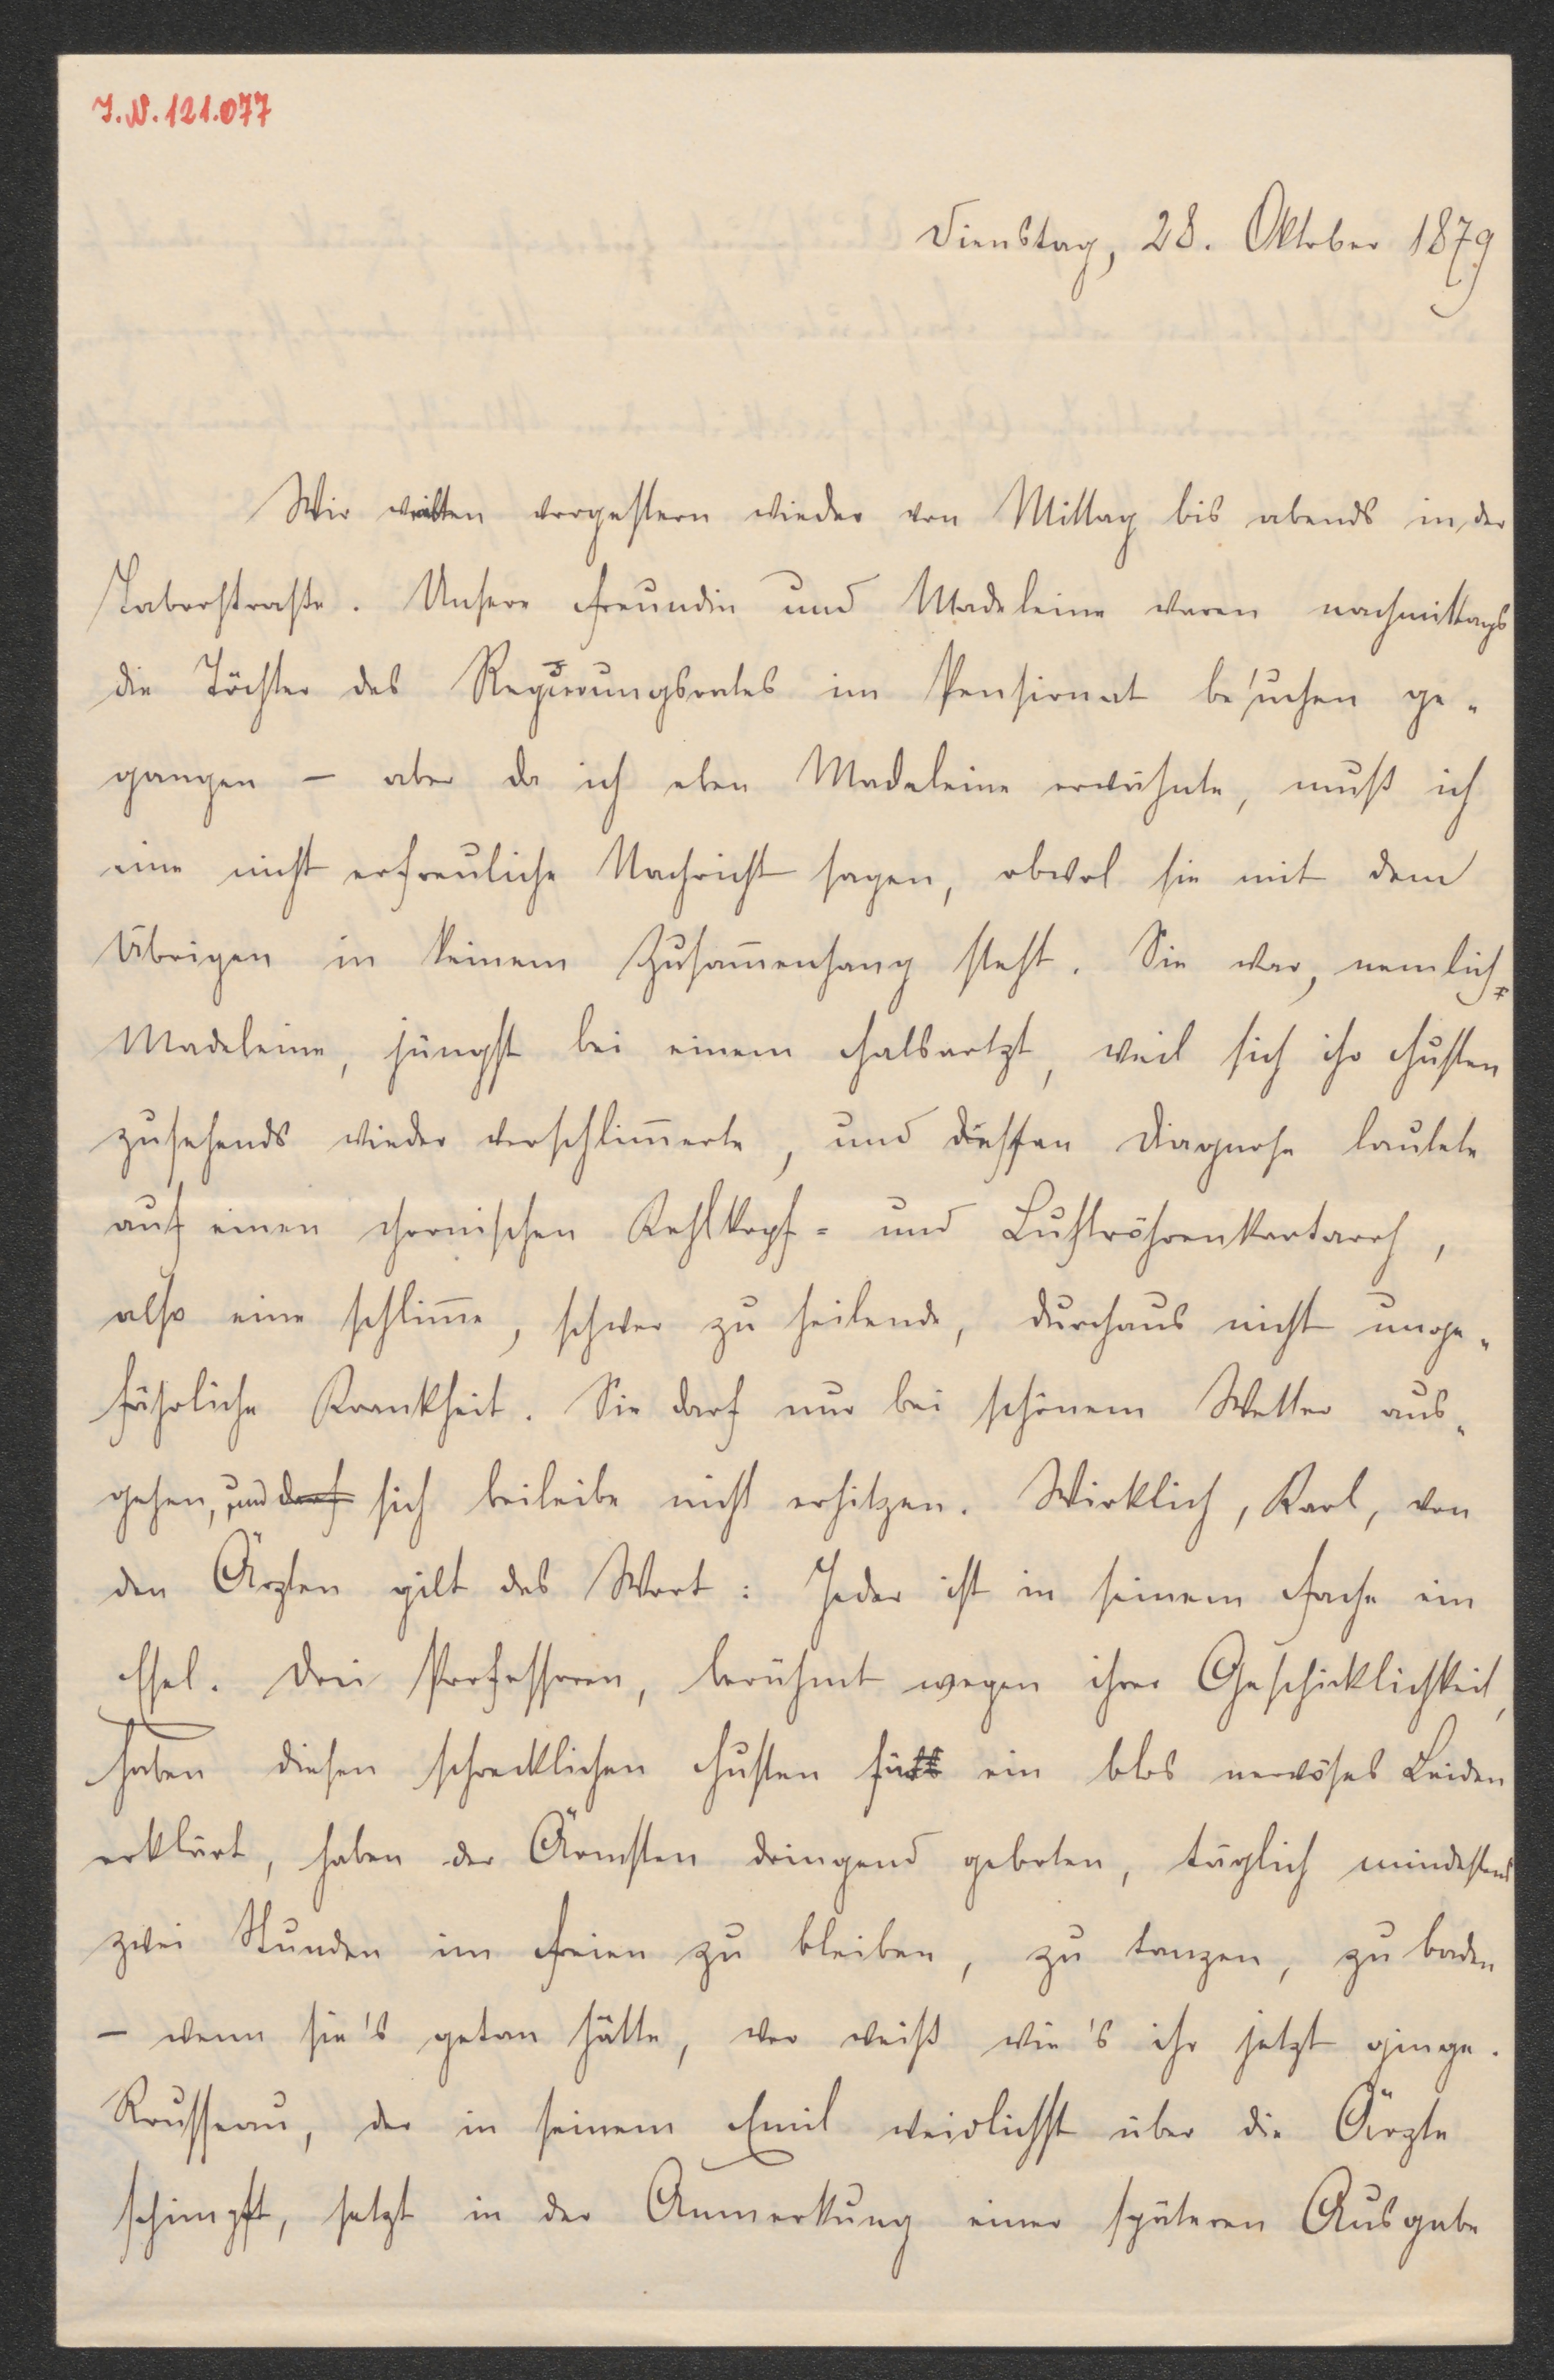 J.N. 121.077
Dienstag, 28. Oktober 1879
Wir weilten vorgestern wieder von Mittag bis abends in der
Taborstraße. Unsere Freundin und Madeleine waren nachmittags
die Töchter des Regierungsrates im Pensionat besuchen ge-
gangen – aber da ich eben Madeleine erwähnte, muß ich
eine nicht erfreuliche Nachricht sagen, obwol sie mit dem
Übrigen in keinem Zusam̅enhang steht. Sie war, nemlich
Madeleine, jüngst bei einem Halsartzt, weil sich ihr Husten
zusehends wieder verschlim̅erte, und dessen Diagnose lautete
auf einen chronischen Kehlkopf- und Luftröhrenkartarrh,
also eine schlim̅e, schwer zu heilende, durchaus nicht unge-
fährliche Krankheit. Sie darf nur bei schönem Wetter aus-
gehen, und darf sich beileibe nicht erhitzen. Wirklich, Karl, von
den Ärzten gilt das Wort: Jeder ist in seinem Fache ein
Esel. Drei Professoren, berühmt wegen ihrer Geschicklichkeit,
haben diesen schrecklichen Husten für ein blos nervöses Leiden
erklärt, haben der Ärmsten dringend geboten, täglich mindestens
zwei Stunden im Freien zu bleiben, zu tanzen, zu baden
– wenn sie's getan hätte, wer weiß wie's ihr jetzt ginge.
Rousseau, der in seinem Emil weidlichst über die Ärzte
schimpft, setzt in der Anmerkung einer späteren Ausgabe